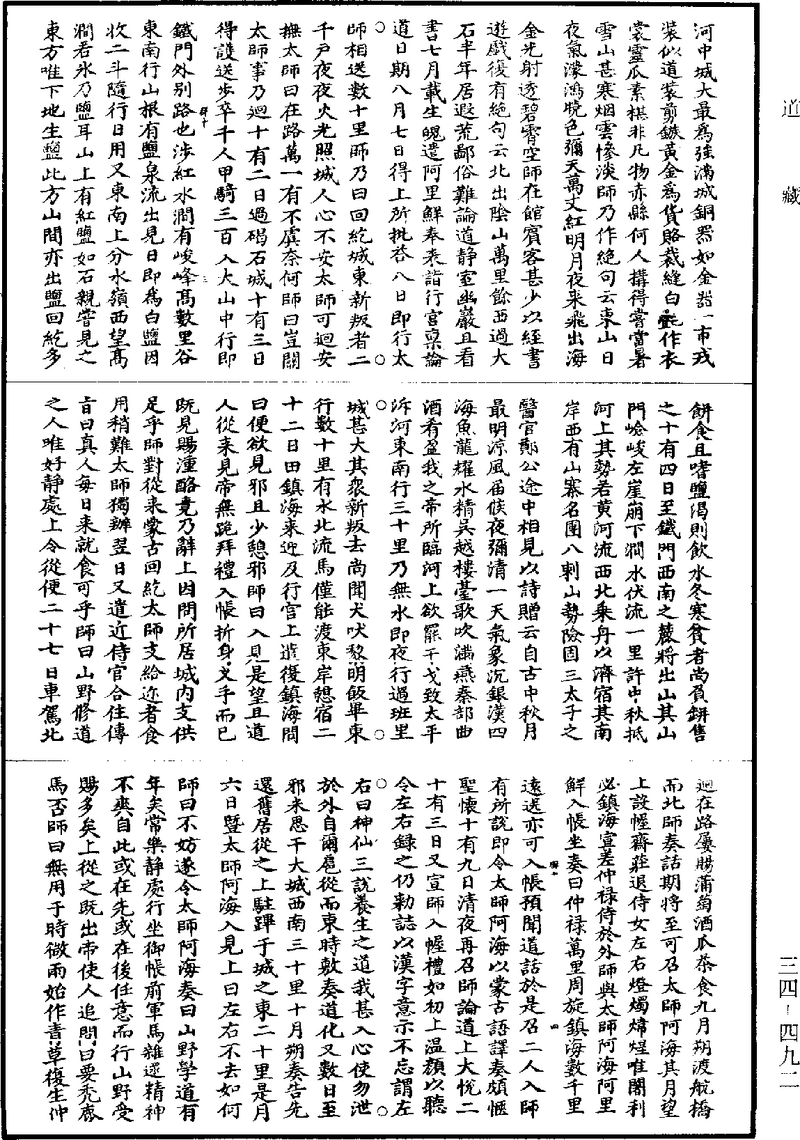 道藏
河中城大最爲強滿城銅器如金器一市戎
裝似道裝剪鏃黃金爲貨賂裁縫白㲲作衣
裳靈瓜素椹非凡物赤縣何人搆得嘗當暑
雪山甚寒烟雲慘淡師乃作絕句云東山日
夜氣濛鴻曉色彌天萬丈紅明月夜來飛出海
金光射透碧霄空師在館賓客甚少以經書
遊戲復有絕句云北出陰山萬里餘西過大
石半年居遐荒鄙俗難論道靜室幽巖且看
書七月載生魄遣阿里鮮奉表詣行宮禀論
道日期八月七日得上所批荅八日即行太
師相送數十里師乃曰回紇城東新叛者二
千戶夜夜火光照城人心不安太師可迴安
撫太師曰在路萬一有不虞奈何師曰豈關
太師事乃迴十有二日過碣石城十有三日
得護送步卒千人甲騎三百入大山中行即
鐵門外別路也涉紅水澗有峻峰高數里谷
東南行山根有鹽泉流出見日即爲白鹽因
收二斗隨行日用又東南上分水嶺西望高
澗若氷乃鹽耳山上有紅鹽如石親嘗見之
東方唯下地生鹽此方山間亦出鹽回紇多
餅食且嗜鹽渴則飲水冬寒貧者尚負缾售
之十有四日至鐵門西南之麓將出山其山
門嶮峻左崖崩下澗水伏流一里許中秋抵
河上其勢若黃河流西北乘舟以濟宿其南
岸西有山寨名團八剌山勢險固三太子之
醫官鄭公途中相見以詩贈云自古中秋月
最明涼風届候夜彌清一天氣象沉銀漢四
海魚龍耀水精吳越樓臺歌吹滿燕秦部曲
酒肴盈我之帝所臨河上欲罷干戈致太平
泝河東南行三十里乃無水即夜行過班里
城甚大其衆新叛去尚聞犬吠黎明飯畢東
行數十里有水北流馬僅能渡東岸憩宿二
十二日田鎮海來迎及行宮上遣復鎮海問
曰便欲見邪且少憩邪師曰入見是望且道
人從來見帝無跪拜禮入帳折身叉手而已
既見賜湩酪竟乃辭上因問所居城內支供
足乎師對從來蒙古回紇太師支給迩者食
用稍難太師獨辦翌日又遣近侍官合住傳
旨曰真人每日來就食可乎師曰山野修道
之人唯好靜處上令從便二十七日車駕北
迴在路屢賜蒲萄酒瓜茶食九月朔渡航橋
而北師奏話期將至可召太師阿海其月望
上設幄齋莊退侍女左右燈燭煒煌唯闍利
必鎮海宣差仲祿侍於外師與太師阿海阿里
鮮入帳坐奏曰仲祿萬里周旋鎮海數千里
遠送亦可入帳預聞道話於是召二人入師
有所說即令太師阿海以蒙古語譯奏頗愜
聖懷十有九日清夜再召師論道上大悅二
十有三日又宣師入幄禮如初上溫顏以聽
令左右錄之仍勑誌以漢字意示不忘謂左
右曰神仙三說養生之道我甚入心使勿泄
於外自爾扈從而東時敷奏道化又數日至
邪米思干大城西南三十里十月朔奏告先
還舊居從之上駐蹕于城之東二十里是月
六日暨太師阿海入見上曰左右不去如何
師曰不妨遂令太師阿海奏曰山野學道有
年矣常樂靜處行坐御帳前軍馬雜遝精神
不爽自此或在先或在後任意而行山野受
賜多矣上從之既出帝使人追問曰要禿鹿
馬否師曰無用于時微雨始作青草復生仲
三四-四九二